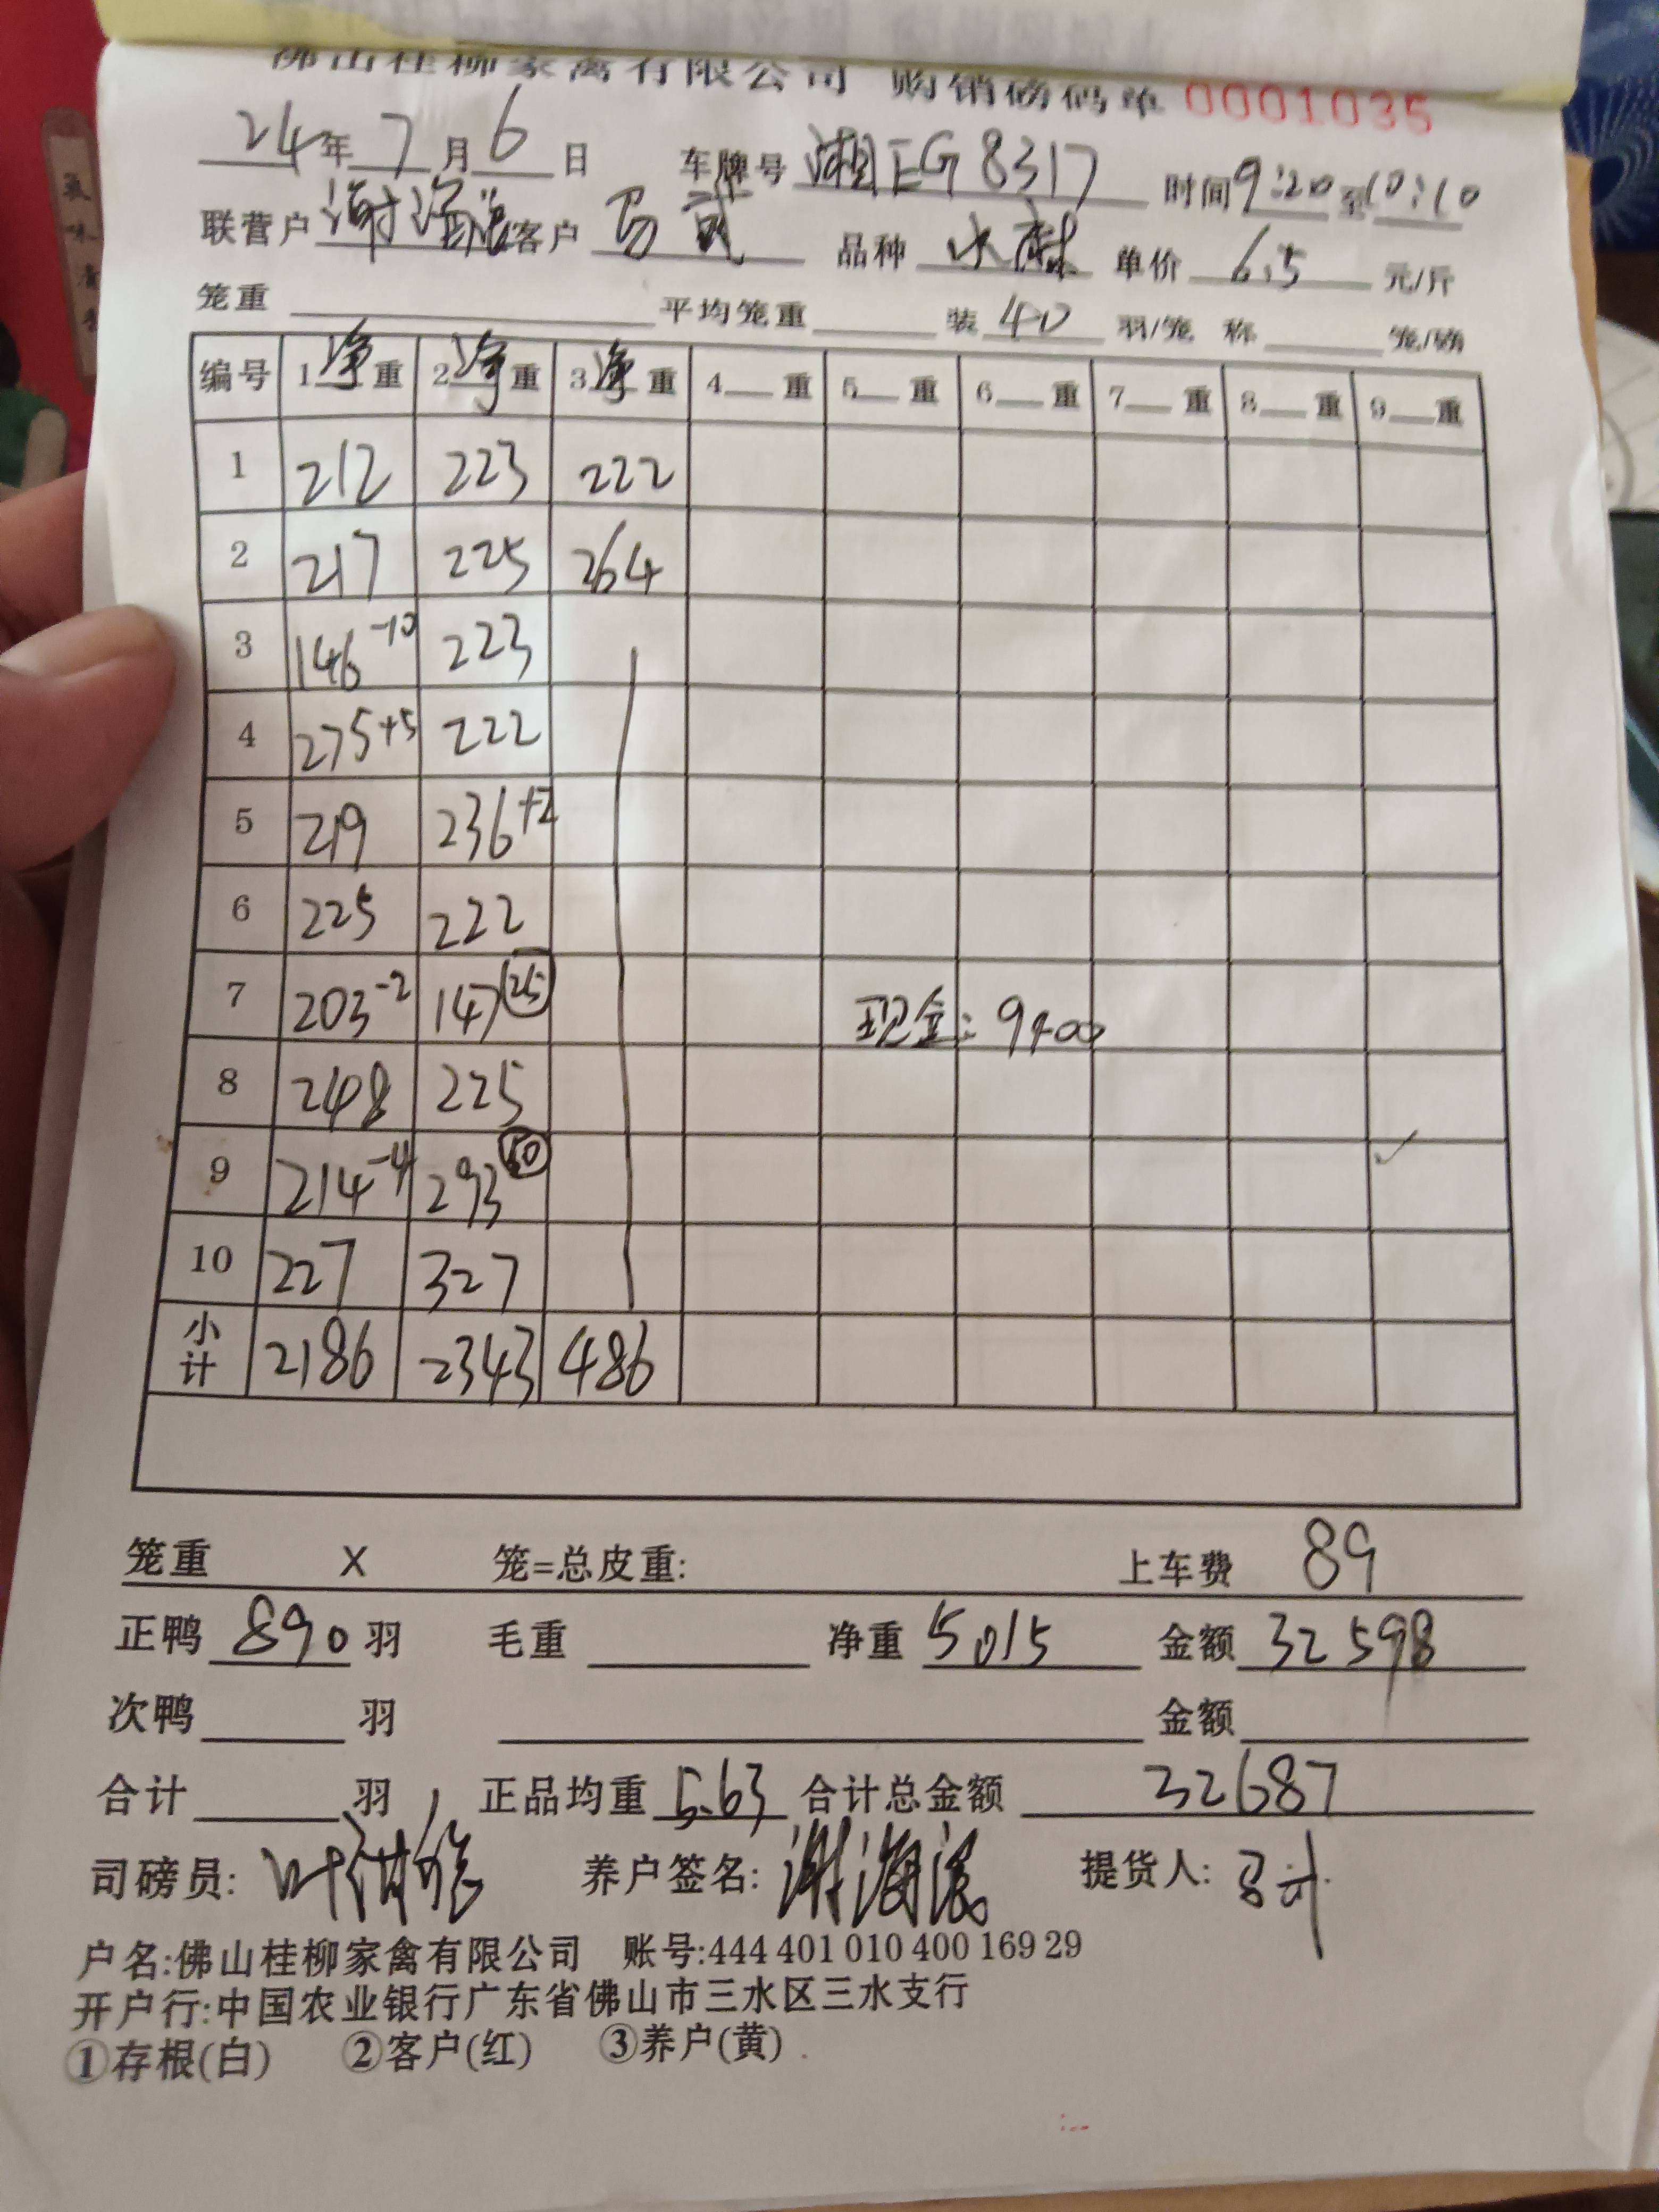 佛山桂柳家禽有限公司 购销磅码单 0001035
24年7月6日 车牌号 湘EG8317 时间9:20至10:10
联营户 谢海滨 客户 马武 品种 水麻 单价 6.5 元/斤
笼重 平均笼重 装 40 羽/笼 称 笼/磅
编号 1净重 2净重 3净重 4重 5重 6重 7重 8重 9重
1 212 223 222
2 217 225 264
3 146-10 223
4 275+5 222
5 219 236+2
6 225 222
7 203-2 147(25) 现金:9400
8 248 225
9 214-4 293(50) ✓
10 227 327
小计 2186 2343 486
笼重 X 笼=总皮重: 上车费 89
正鸭 890 羽 毛重 净重 5015 金额 32598
次鸭 羽 金额
合计 羽 正品均重 5.63 合计总金额 32687
司磅员: 养户签名:谢海滨 提货人:
户名:佛山桂柳家禽有限公司 账号:444 401 010 400 169 29
开户行:中国农业银行广东省佛山市三水区三水支行
①存根(白) ②客户(红) ③养户(黄)